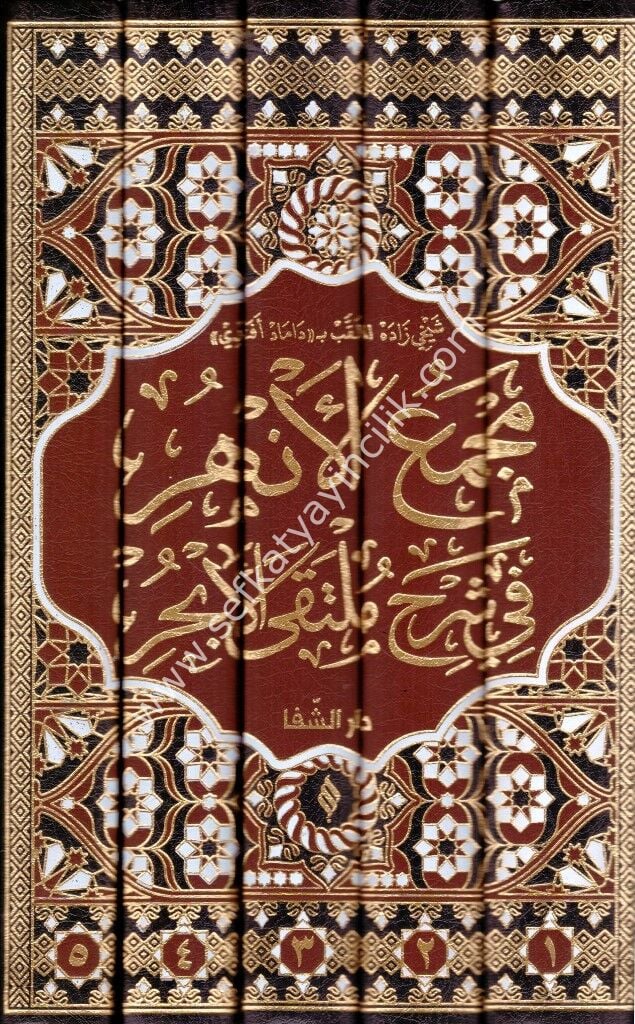 شيخي زاده الملقب بـ«داماد أفندي»
مجمع الأنهر
في شرح ملتقى الأبحر
دار الشفا
١ ٢ ٣ ٤ ٥
www.sefkatyayincilik.com